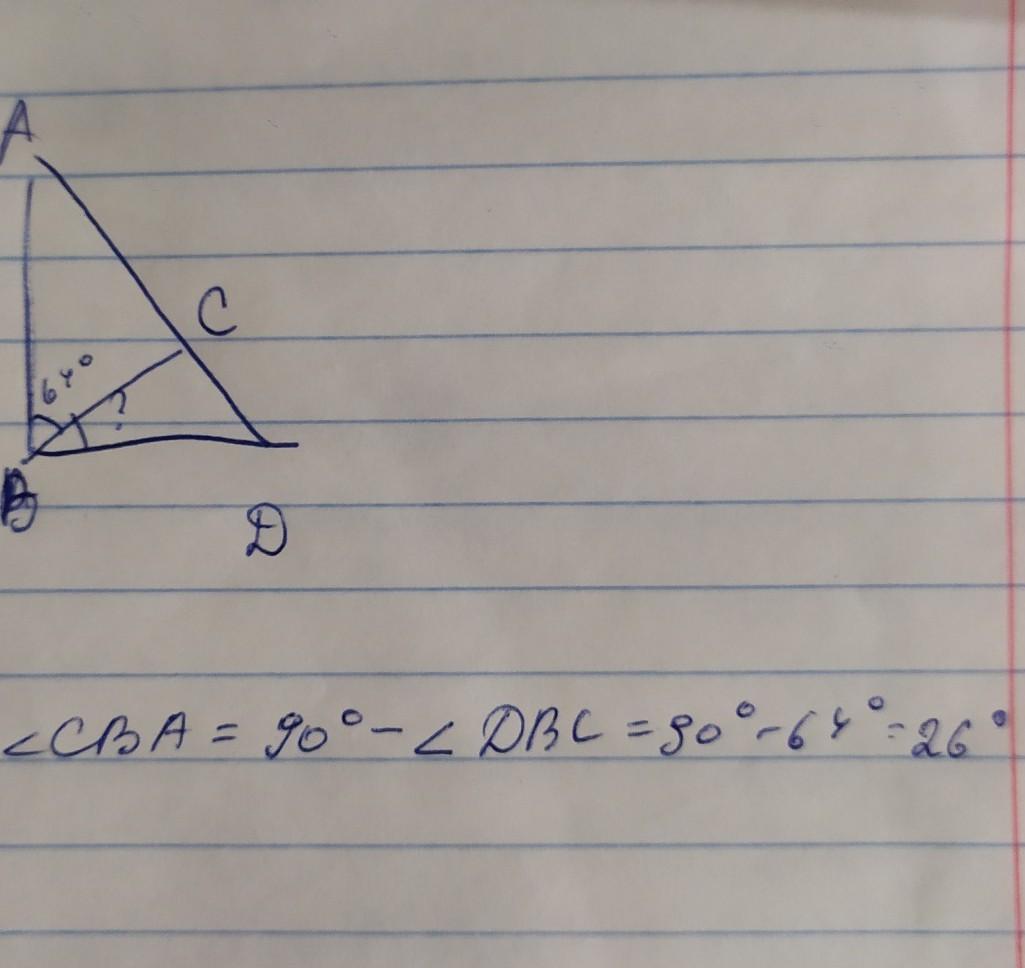 A
C
64°
?
B
D
∠CBA = 90° - ∠DBC = 90° - 64° = 26°